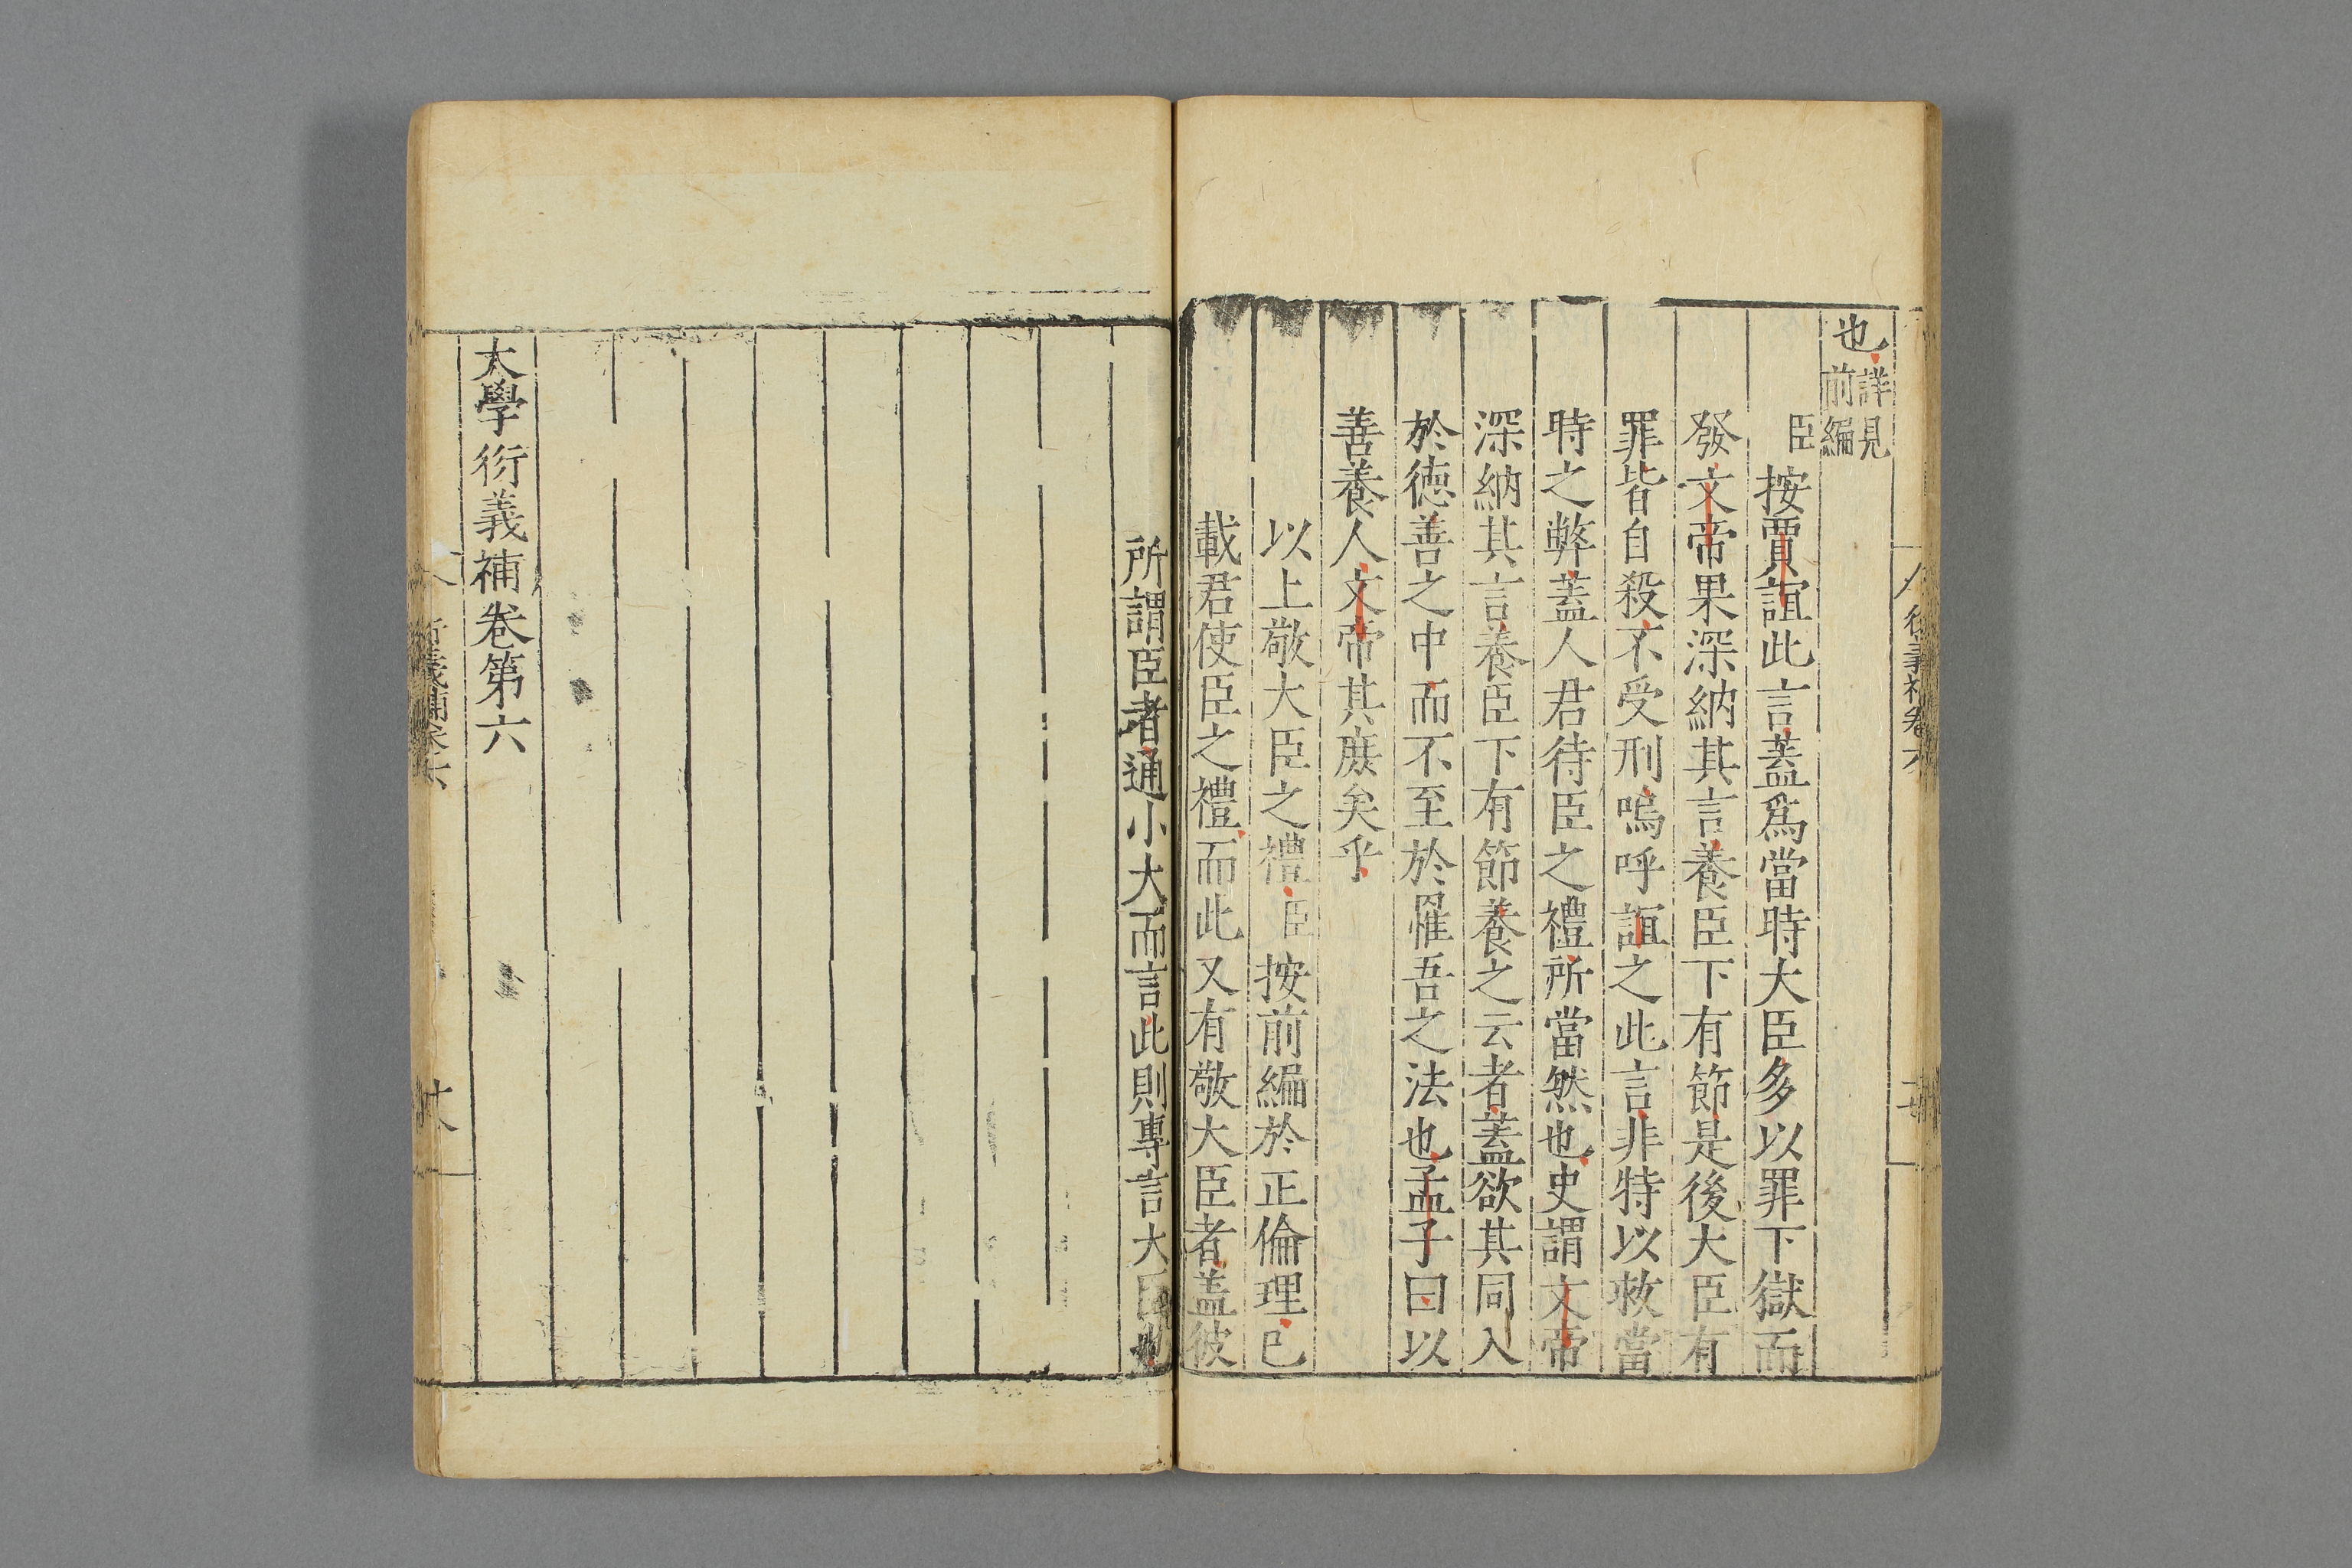 也詳見前編
臣按賈誼此言蓋爲當時大臣多以罪下獄而
發文帝果深納其言養臣下有節是後大臣有
罪皆自殺不受刑嗚呼誼之此言非特以救當
時之弊蓋人君待臣之禮所當然也史謂文帝
深納其言養臣下有節養之云者蓋欲其同入
於德善之中而不至於罹吾之法也孟子曰以
善養人文帝其庶矣乎
以上敬大臣之禮臣按前編於正倫理已
載君使臣之禮而此又有敬大臣者盖彼
所謂臣者通小大而言此則專言大臣也
大學衍義補卷第六